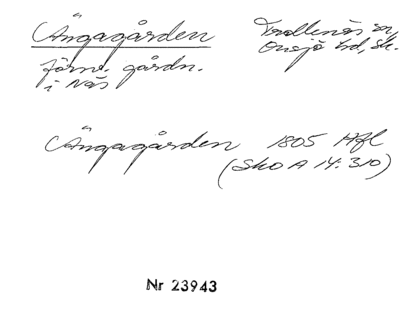 Ängagården
Trollenäs sn,
Onsjö hd, Sk.
försv. gårdn.
i Näs
Ängagården 1805 Hfl
(Sko A 14:310)
Nr 23943